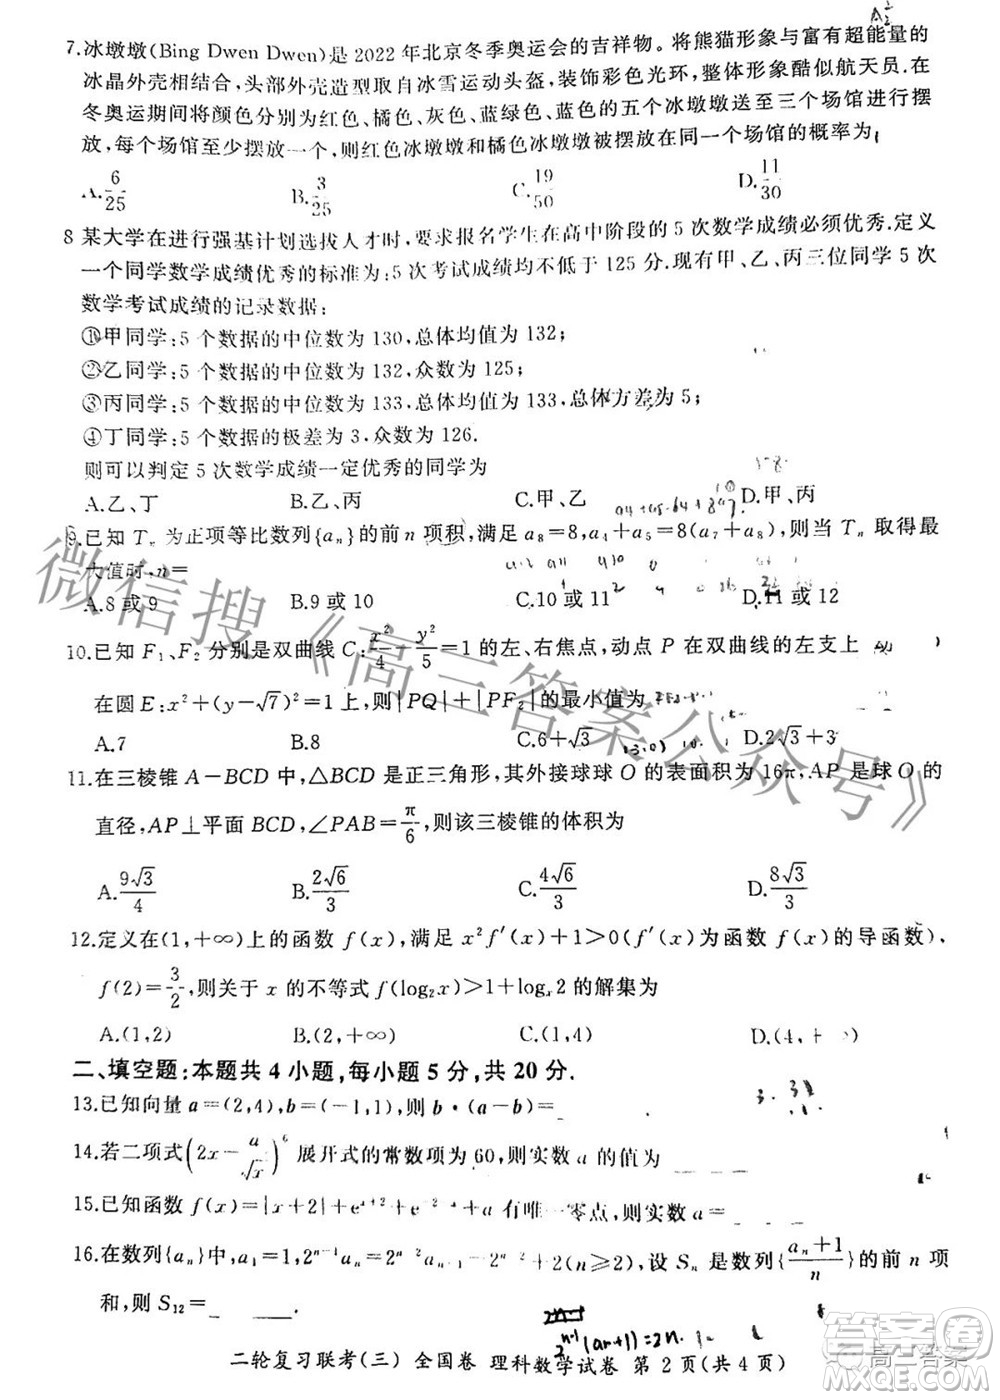 7.冰墩墩(Bing Dwen Dwen)是 2022 年北京冬季奥运会的吉祥物。将熊猫形象与富有超能量的
冰晶外壳相结合,头部外壳造型取自冰雪运动头盔,装饰彩色光环,整体形象酷似航天员.在
冬奥运期间将颜色分别为红色、橘色、黄色、蓝绿色、蓝色的五个冰墩墩安送至三个场馆进行摆
放,每个场馆至少摆放一个,则红色冰墩墩和橘色冰墩墩被摆放在同一个场馆的概率为
A. 6/25 B. 3/25 C. 19/50 D. 11/30
8 某大学在进行强基计划选拔人才时,要求报名学生在高中阶段的 5 次数学成绩必须优秀.定义
一个同学数学成绩优秀的标准为:5 次考试成绩均不低于 125 分.现有甲、乙、丙三位同学 5 次
数学考试成绩的记录数据:
①甲同学:5 个数据的中位数为 130,总体均值为 132;
②乙同学:5 个数据的中位数为 132,众数为 125;
③丙同学:5 个数据的中位数为 133,总体均值为 133,总体方差为 5;
④丁同学:5 个数据的极差为 3,众数为 126.
则可以判定 5 次数学成绩一定优秀的同学为
A.乙、丁 B.乙、丙 C.甲、乙 D.甲、丙
9.已知 Tₙ 为正项等比数列{aₙ}的前 n 项积,满足 a₈=8,a₄+a₅=8(a₇+a₈),则当 Tₙ 取得最
大值时,n=
A.8 或 9 B.9 或 10 C.10 或 11 D.11 或 12
10.已知 F₁、F₂ 分别是双曲线 C: x²/4 - y²/5 =1 的左、右焦点,动点 P 在双曲线的左支上
在圆 E:x²+(y-√7)²=1 上,则|PQ|+|PF₂|的最小值为
A.7 B.8 C.6+√3 D.2√3+3
11.在三棱锥 A-BCD 中,△BCD 是正三角形,其外接球球 O 的表面积为 16π,AP 是球 O 的
直径,AP⊥平面 BCD,∠PAB= π/6,则该三棱锥的体积为
A. 9√3/4 B. 2√6/3 C. 4√6/3 D. 8√3/3
12.定义在(1,+∞)上的函数 f(x),满足 x²f′(x)+1>0(f′(x)为函数 f(x)的导函数),
f(2)= 3/2,则关于 x 的不等式 f(log₂x)>1+logₓ2 的解集为
A.(1,2) B.(2,+∞) D.(4,+∞)
二、填空题:本题共 4 小题,每小题 5 分,共 20 分.
13.已知向量 a=(2,4),b=(-1,1),则 b·(a-b)=
14.若二项式(2x- a/√x)⁶ 展开式的常数项为 60,则实数 a 的值为
15.已知函数 f(x)=|x+2|+eˣ⁺²+ 有唯一零点,则实数 a=
16.在数列{aₙ}中,a₁=1,2ⁿ⁻¹aₙ=2ⁿ⁻²aₙ₋₁+2(n≥2),设 Sₙ 是数列{(aₙ+1)/n}的前 n 项
和,则 S₁₂= .
二轮复习联考(三) 全国卷 理科数学试卷 第 2 页(共 4 页)
微信搜《高三答案公众号》
高三答案